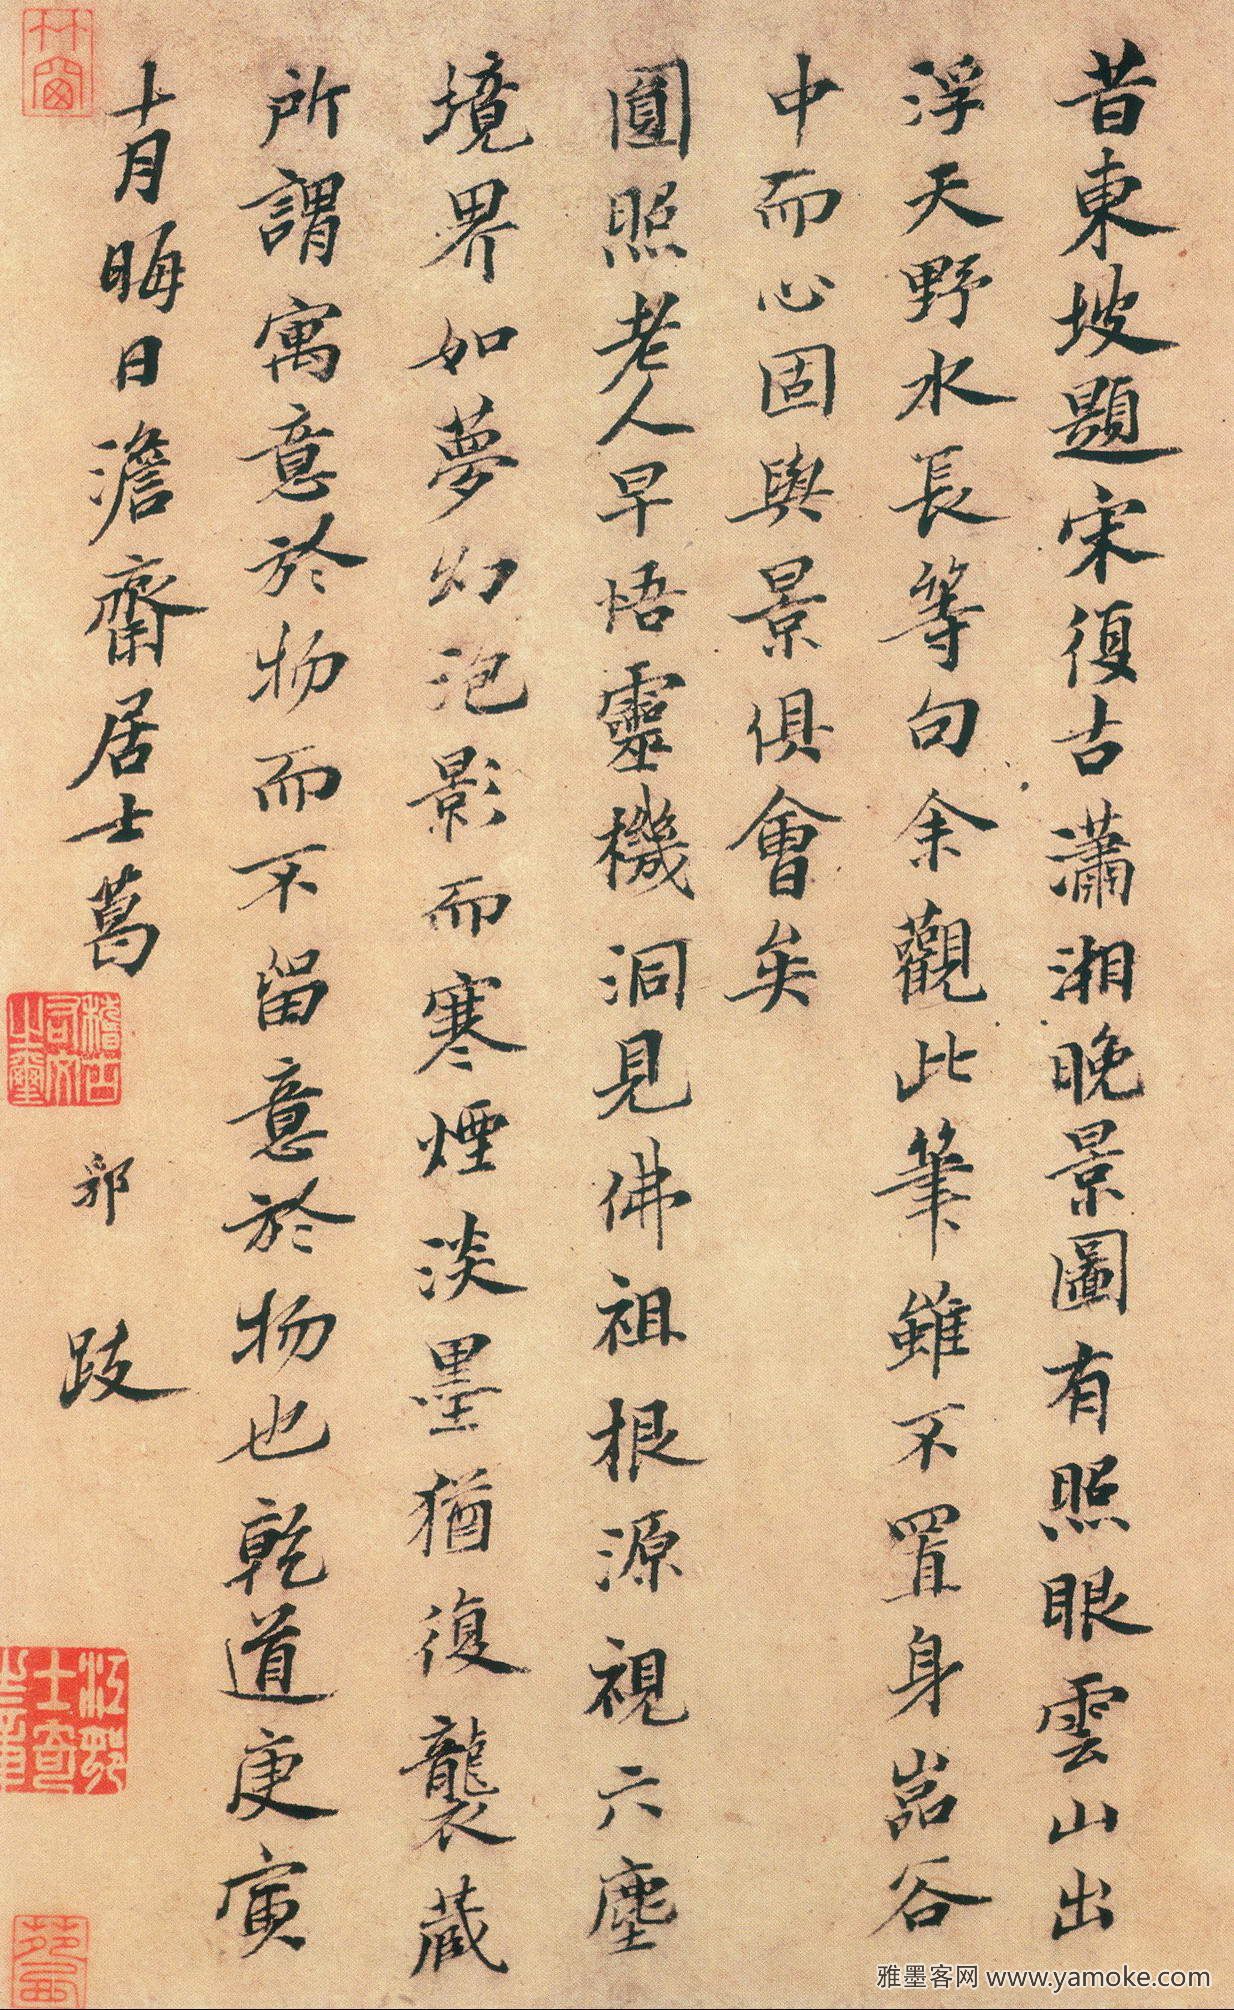 昔東坡題宋復古瀟湘晚景圖有照眼雲山出
浮天野水長等句余觀此筆雖不置身嵓谷
中而心固與景俱會矣
圓照老人早悟靈機洞見佛祖根源視六塵
境界如夢幻泡影而寒煙淡墨猶復襲藏
所謂寓意於物而不留意於物也乾道庚寅
十月晦日澹齋居士葛
郛
跋
雅墨客网 www.yamoke.com